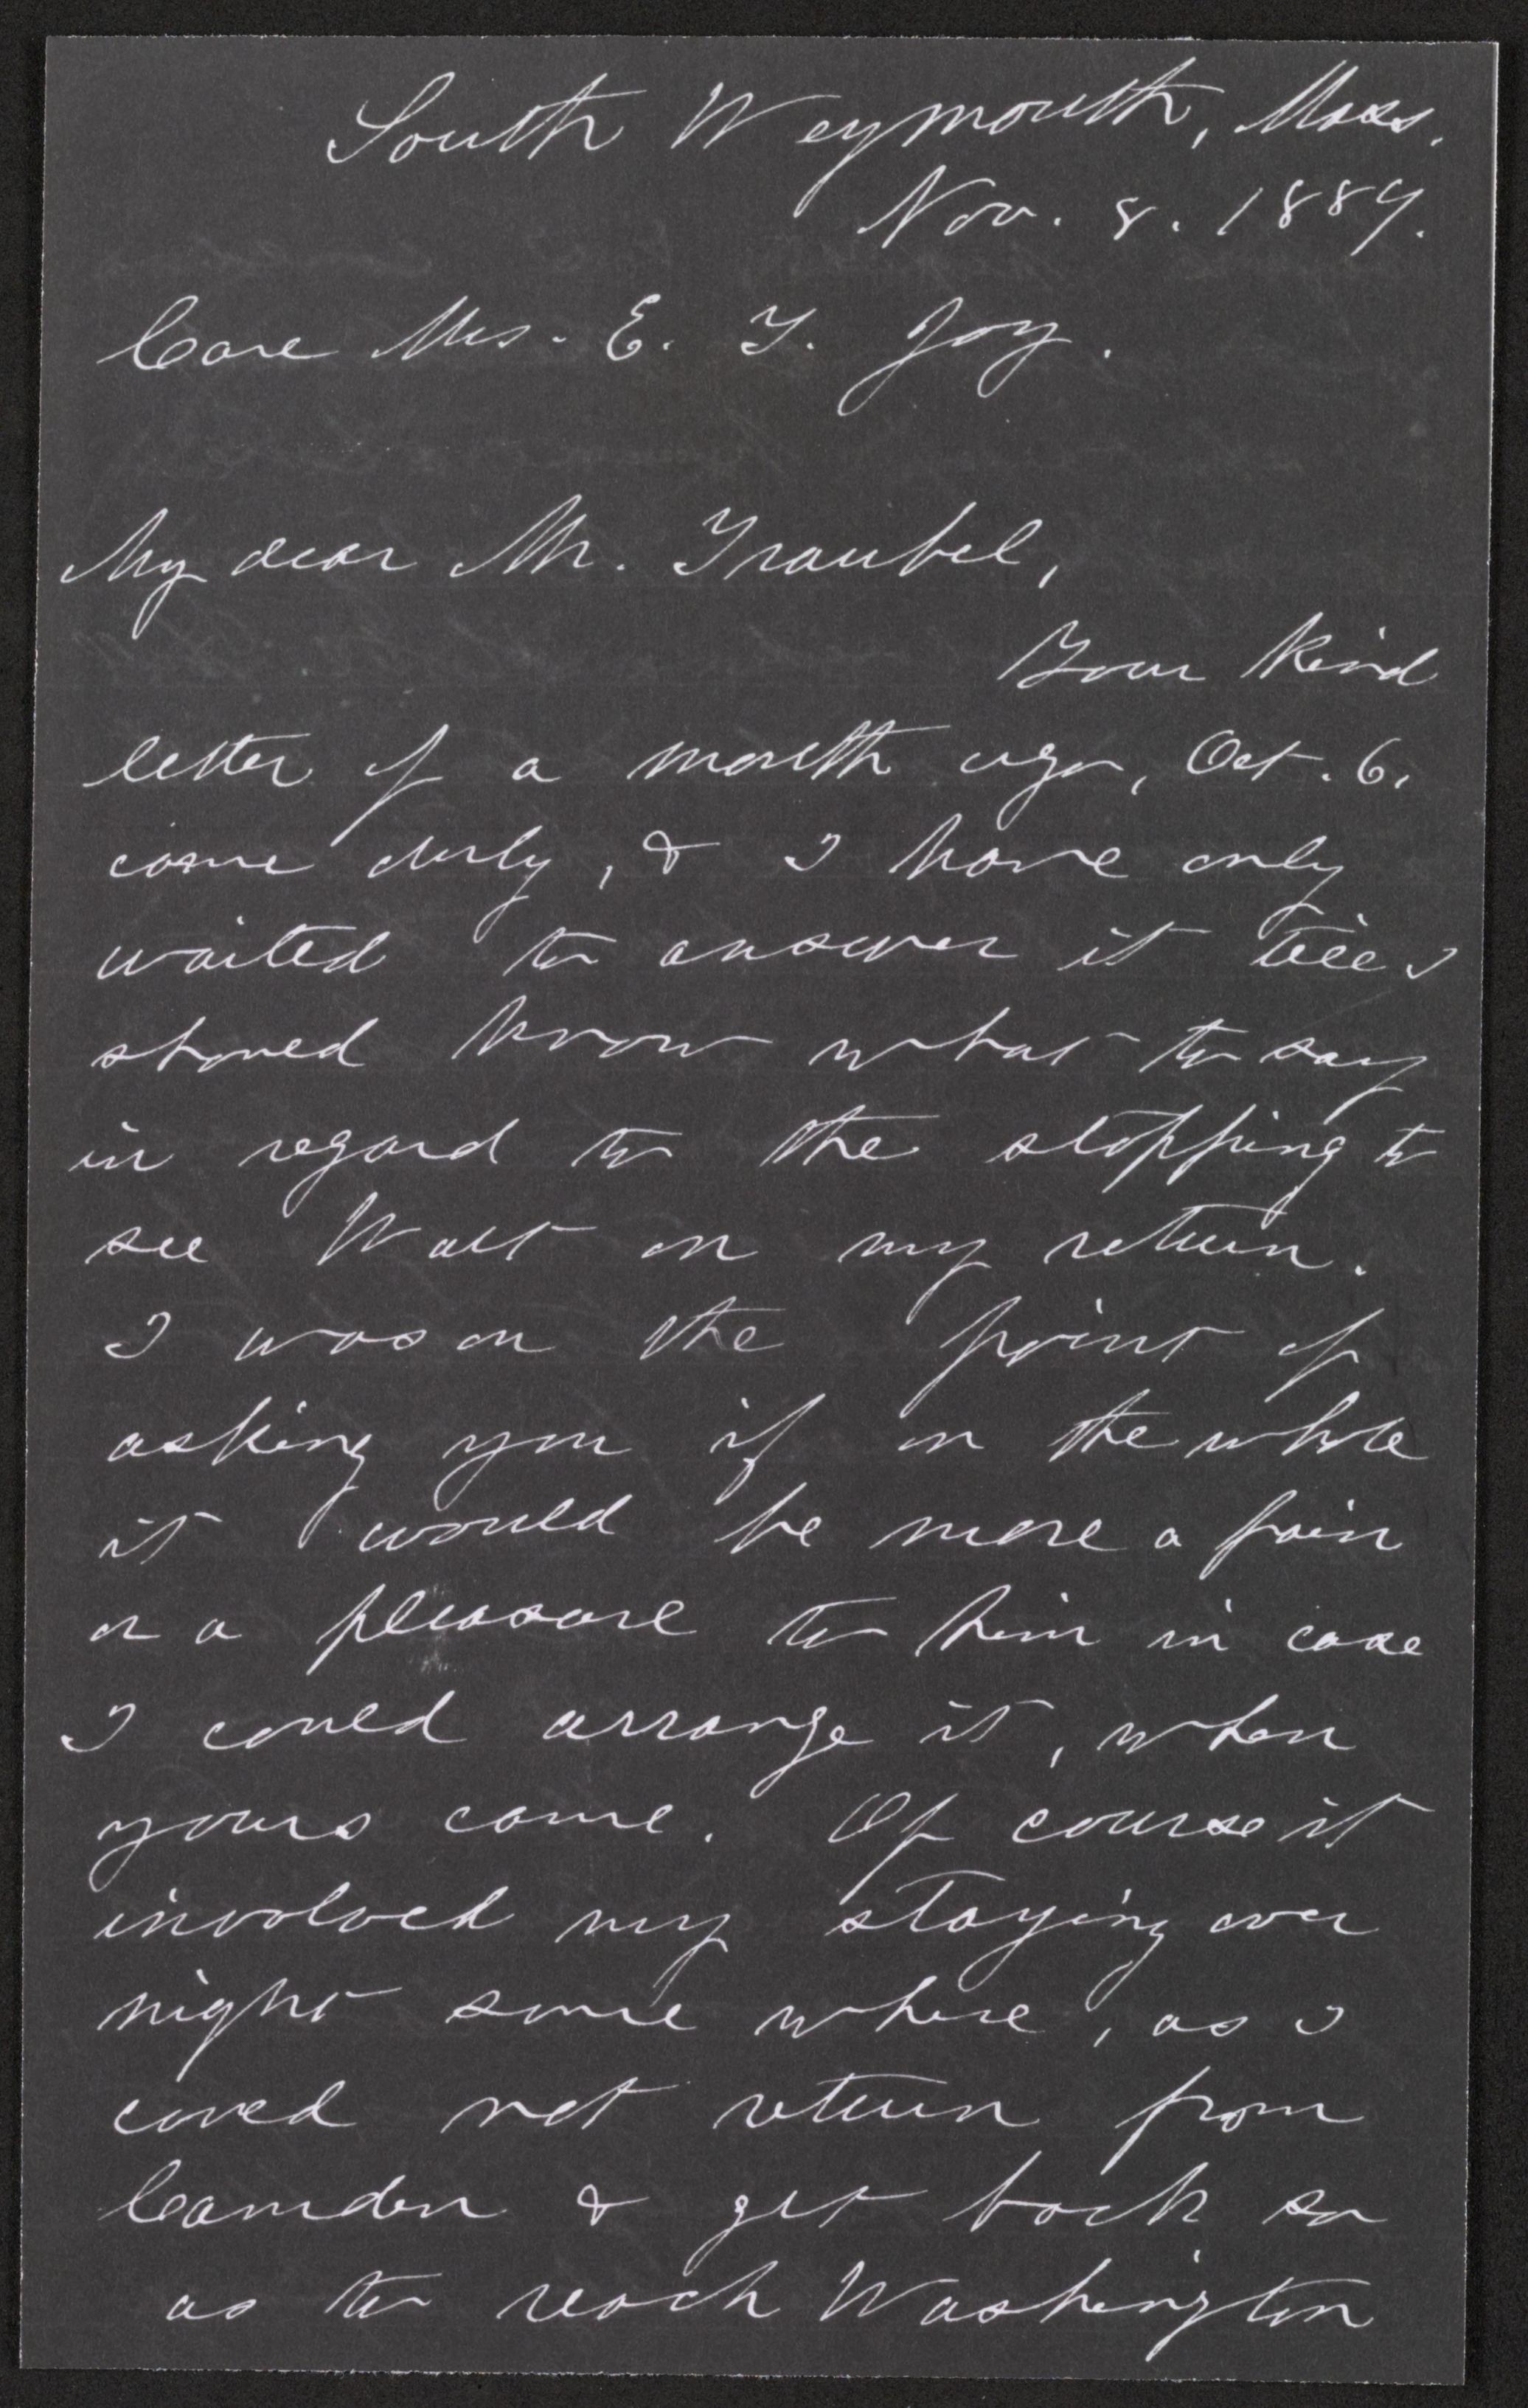 South Weymouth, Mass.
Nov. 8. 1889.
Care Mrs. E. T. Joy.
My dear Mr. Traubel,
Your kind
letter of a month ago, Oct. 6,
came duly, & I have only
waited to answer it till I
should know what to say
in regard to the stopping to
see Walt on my return.
I was on the point of
asking you if on the whole
it would be more a pain
or a pleasure to him in case
I could arrange it, when
yours came. Of course it
involved my staying over
night some where, as I
could not return from
Camden & get back so
as to reach Washington